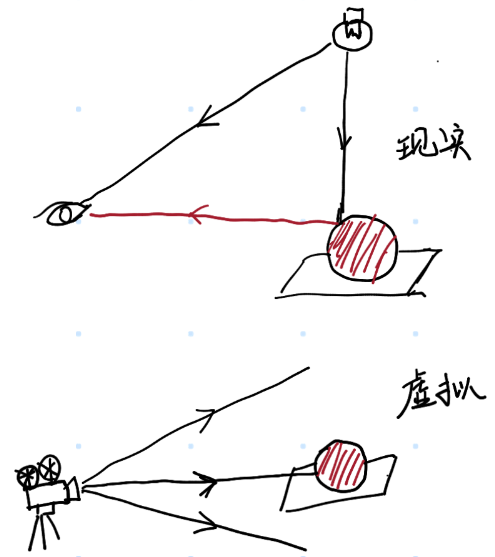 现实
虚拟